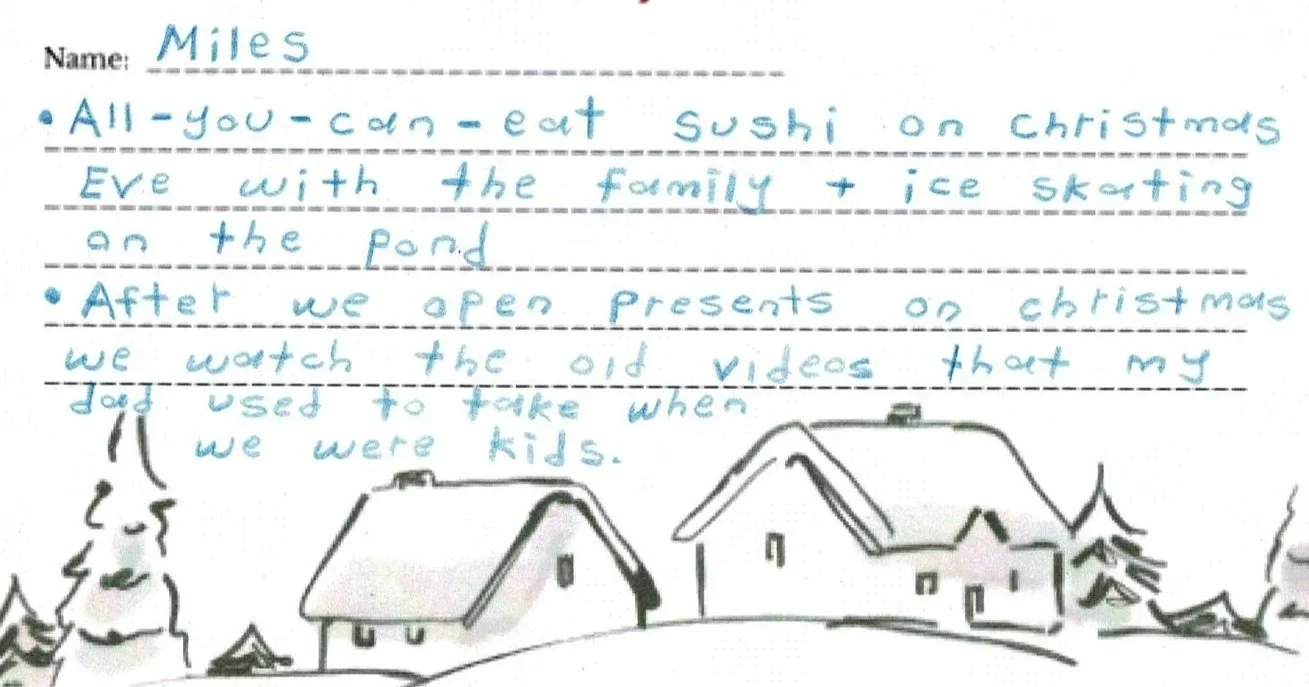 Name: Miles
• All-you-can-eat sushi on christmas
Eve with the family + ice skating
on the pond
• After we open presents on christmas
we watch the old videos that my
dad used to take when
we were kids.